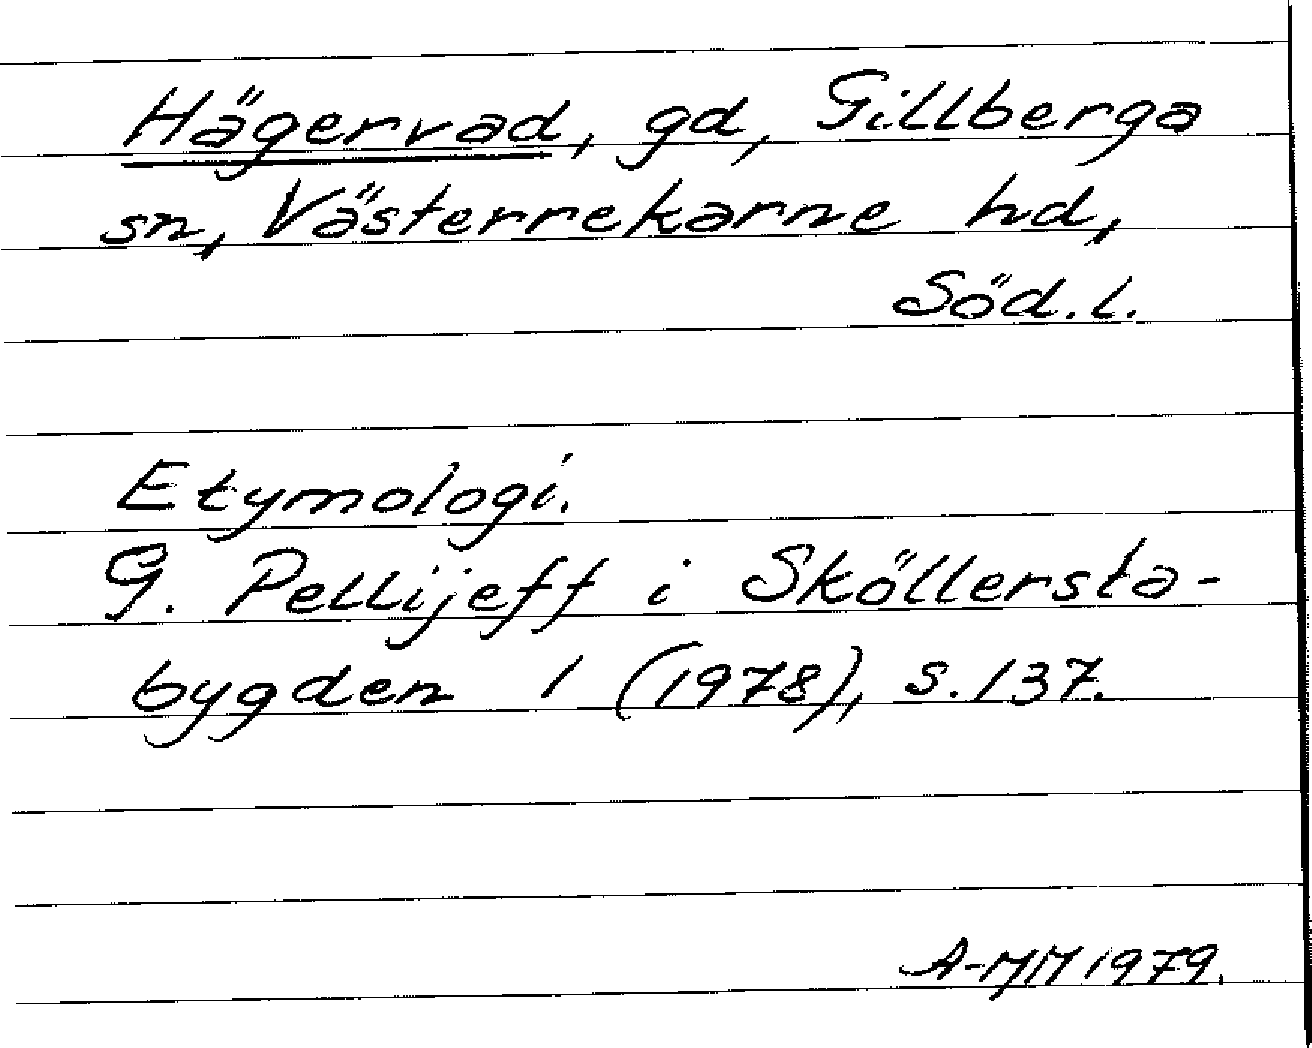 Hägervad, gd, Gillberga
sn, Västerrekarne hd,
Söd. l.
Etymologi.
G. Pellijeff i Sköllersta-
bygden 1 (1978), s. 137.
A-MM 1979.